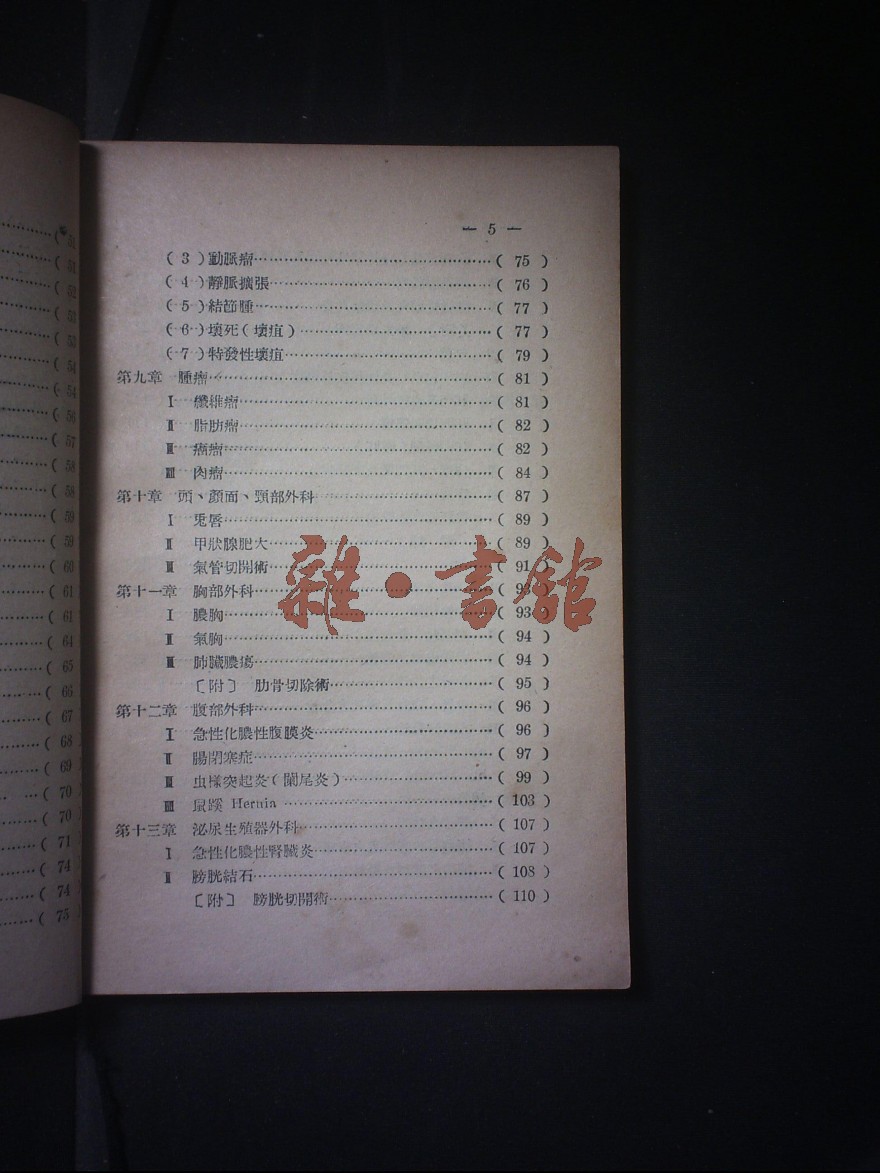 — 5 —
(3)動脈瘤……(75)
(4)靜脈擴張……(76)
(5)結節腫……(77)
(6)壞死(壞疽)……(77)
(7)特發性壞疽……(79)
第九章 腫瘤……(81)
Ⅰ 纖維瘤……(81)
Ⅱ 脂肪瘤……(82)
Ⅲ 癌瘤……(82)
ⅠⅠⅠⅠ 肉瘤……(84)
第十章 頭、顏面、頸部外科……(87)
Ⅰ 兎唇……(89)
Ⅱ 甲狀腺肥大……(89)
Ⅲ 氣管切開術……(91)
第十一章 胸部外科……(93)
Ⅰ 膿胸……(93)
Ⅱ 氣胸……(94)
Ⅲ 肺臟膿瘍……(94)
〔附〕 肋骨切除術……(95)
第十二章 腹部外科……(96)
Ⅰ 急性化膿性腹膜炎……(96)
Ⅱ 腸閉塞症……(97)
Ⅲ 虫樣突起炎(闌尾炎)……(99)
ⅠⅠⅠⅠ 鼠蹊 Hernia……(103)
第十三章 泌尿生殖器外科……(107)
Ⅰ 急性化膿性腎臟炎……(107)
Ⅱ 膀胱結石……(108)
〔附〕 膀胱切開術……(110)
雜·書館